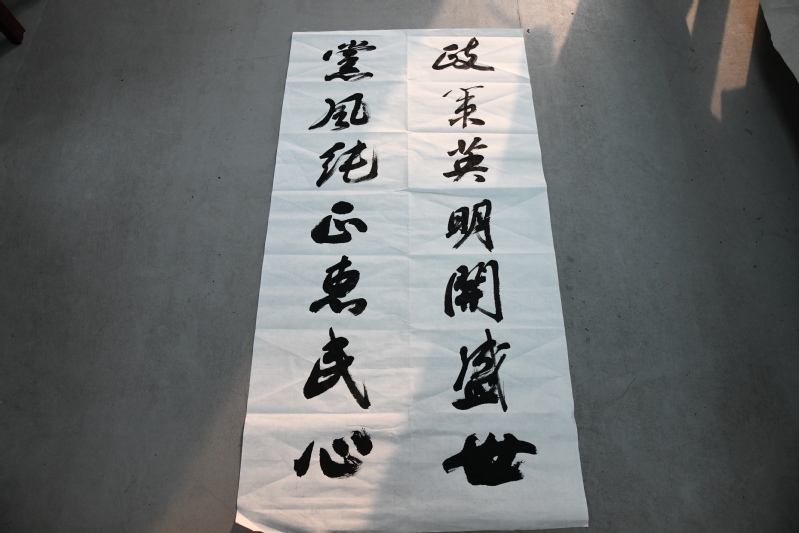 政策英明開盛世
黨風純正惠民心